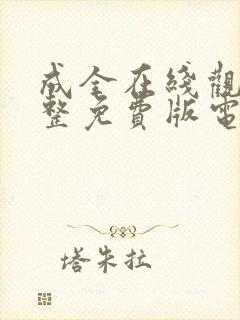 成全在綫觀
整免費版電
塔朱拉